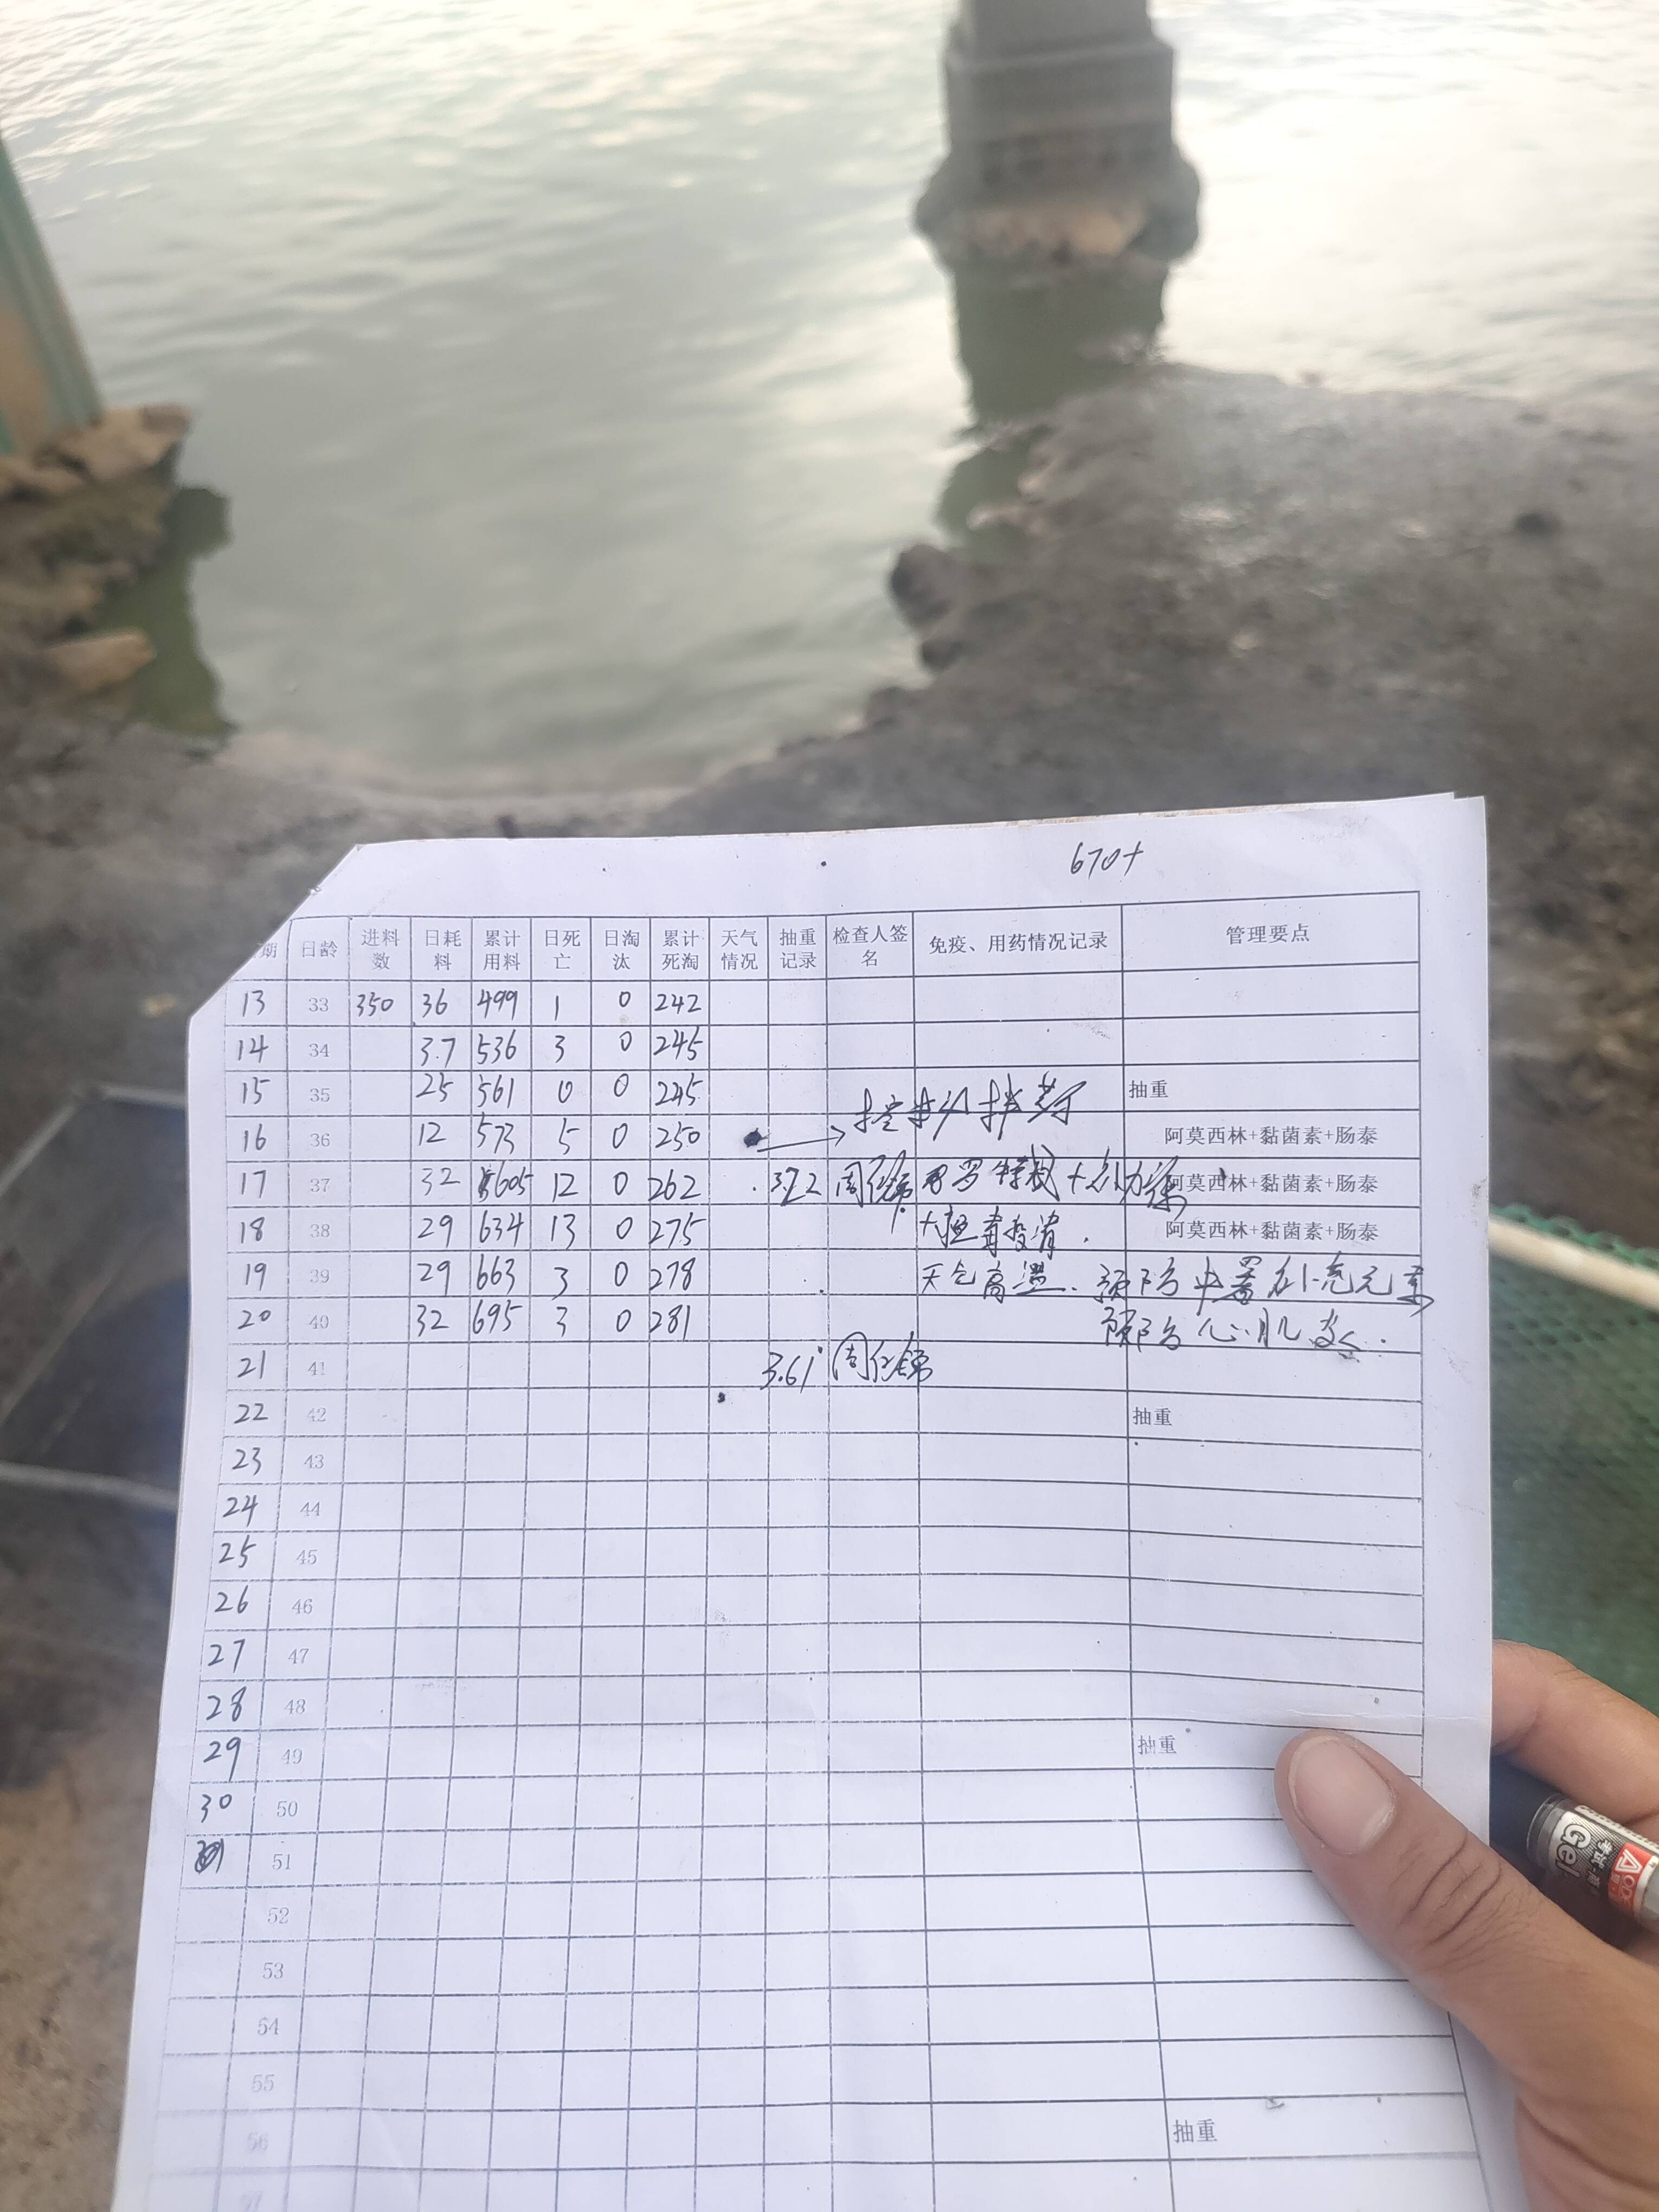 670+
期 日龄 进料数 日耗料 累计用料 日死亡 日淘汰 累计死淘 天气情况 抽重记录 检查人签名 免疫、用药情况记录 管理要点
13 33 350 36 499 1 0 242
14 34 3.7 536 3 0 245
15 35 25 561 0 0 245 抽重
16 36 12 573 5 0 250 → 控料 阿莫西林+黏菌素+肠泰
17 37 32 605 12 0 262 3.22 周 阿莫西林+黏菌素+肠泰
18 38 29 634 13 0 275 阿莫西林+黏菌素+肠泰
19 39 29 663 3 0 278 天气高温.预防中暑补充元素
20 40 32 695 3 0 281 预防心肌炎.
21 41 3.61 周
22 42 抽重
23 43
24 44
25 45
26 46
27 47
28 48
29 49 抽重
30 50
51
52
53
54
55
56 抽重
57
考试
Gel